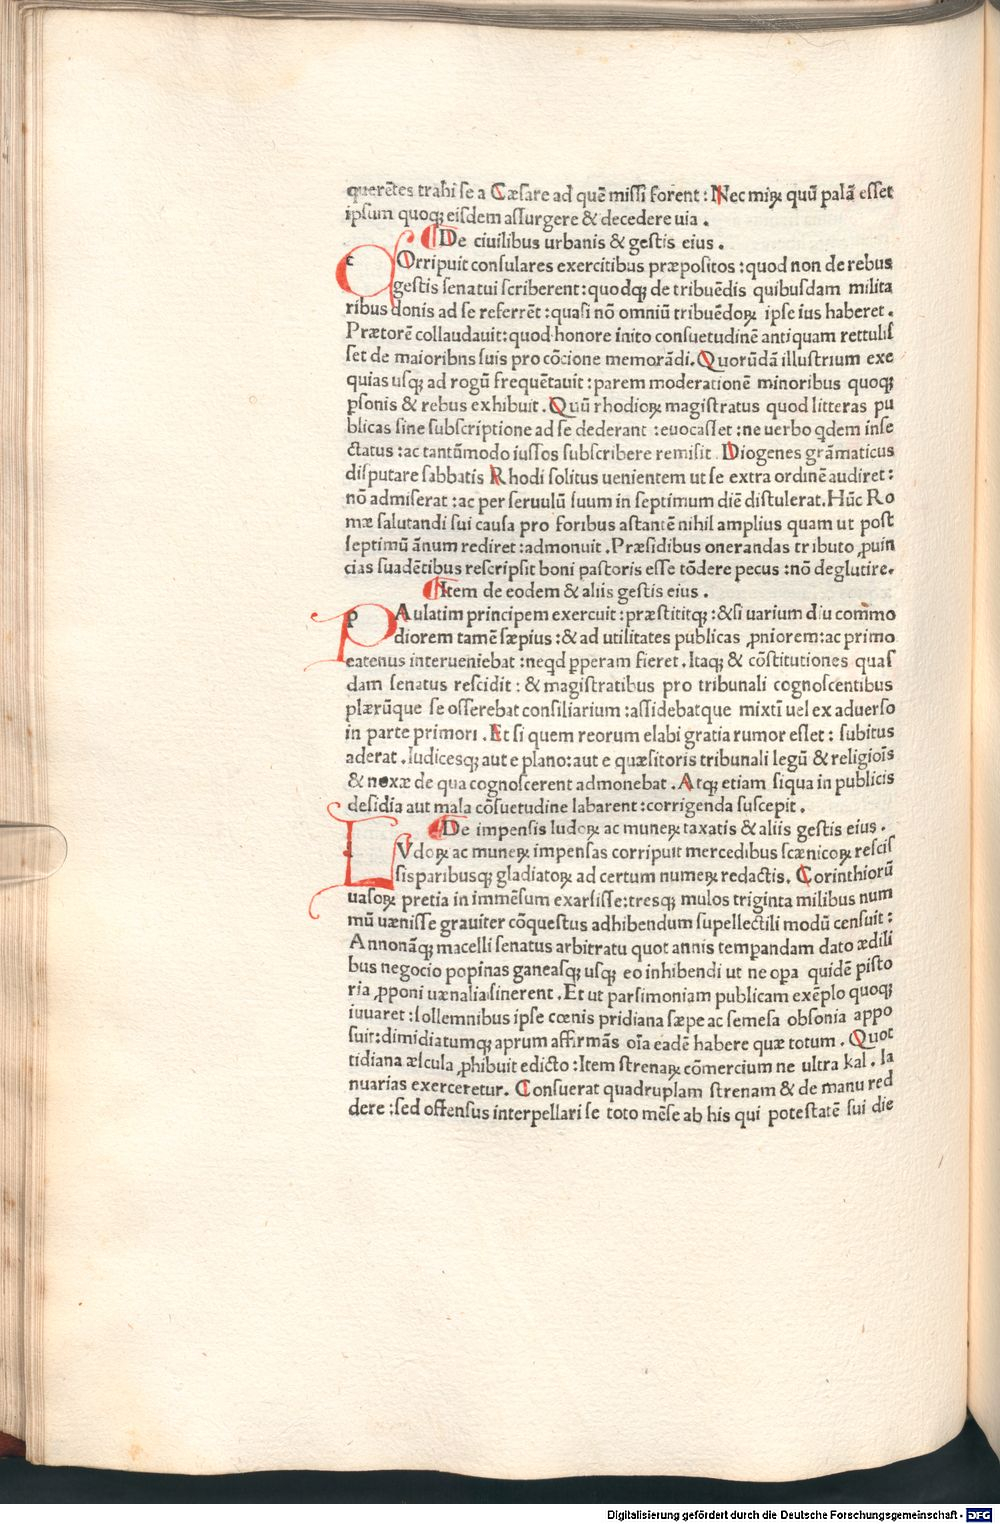 querētes trahi se a Cæsare ad quē missi forent : Nec miꝝ quū palā esset
ipsum quoqꝫ eisdem assurgere & decedere uia .
De ciuilibus urbanis & gestis eius .
c Orripuit consulares exercitibus præpositos : quod non de rebus
gestis senatui scriberent : quodqꝫ de tribuēdis quibusdam milita
ribus donis ad se referrēt : quasi nō omniū tribuēdoꝝ ipse ius haberet .
Prætorē collaudauit : quod honore inito consuetudinē antiquam rettulis
set de maioribns suis pro cōcione memorādi. Quorūdā illustrium exe
quias usqꝫ ad rogū frequētauit : parem moderationē minoribus quoqꝫ
ꝑsonis & rebus exhibuit . Quū rhodioꝝ magistratus quod litteras pu
blicas sine subscriptione ad se dederant : euocasset : ne uerbo qdem inse
ctatus : ac tantūmodo iussos subscribere remisit . Diogenes grāmaticus
disputare sabbatis Rhodi solitus uenientem ut se extra ordinē audiret :
nō admiserat : ac per seruulū suum in septimum diē distulerat. Hūc Ro
mæ salutandi sui causa pro foribus astantē nihil amplius quam ut post
septimū ānum rediret : admonuit . Præsidibus onerandas tributo ꝓuin
cias suadētibus rescripsit boni pastoris esse tōdere pecus : nō deglutire.
Item de eodem & aliis gestis eius .
p Aulatim principem exercuit : præstititqꝫ : & si uarium diu commo
diorem tamē sæpius : & ad utilitates publicas ꝓniorem : ac primo
eatenus interueniebat : neqd ꝑperam fieret . Itaqꝫ & cōstitutiones quas
dam senatus rescidit : & magistratibus pro tribunali cognoscentibus
plærūque se offerebat consiliarium : assidebatque mixti uel ex aduerso
in parte primori . Et si quem reorum elabi gratia rumor esset : subitus
aderat . Iudicesqꝫ aut e plano : aut e quæsitoris tribunali legū & religiōis
& noxæ de qua cognoscerent admonebat . Atqꝫ etiam siqua in publicis
desidia aut mala cōsuetudine labarent : corrigenda suscepit .
De impensis ludoꝝ ac muneꝝ taxatis & aliis gestis eius .
l Vdoꝝ ac muneꝝ impensas corripuit mercedibus scænicoꝝ rescis
sis paribusqꝫ gladiatoꝝ ad certum numeꝝ redactis. Corinthiorū
uasoꝝ pretia in immēsum exarsisse : tresqꝫ mulos triginta milibus num
mū uænisse grauiter cōquestus adhibendum supellectili modū censuit :
Annonāqꝫ macelli senatus arbitratu quot annis temꝑandam dato ædili
bus negocio popinas ganeasqꝫ usqꝫ eo inhibendi ut ne oꝑa quidē pisto
ria ꝓponi uænalia sinerent . Et ut parsimoniam publicam exēplo quoqꝫ
iuuaret : sollemnibus ipse cœnis pridiana sæpe ac semesa obsonia appo
suit : dimidiatumqꝫ aprum affirmās oīa eadē habere quæ totum . Quot
tidiana æscula ꝓhibuit edicto : Item strenaꝝ cōmercium ne ultra kal . Ia
nuarias exerceretur. Consuerat quadruplam strenam & de manu red
dere : sed offensus interpellari se toto mēse ab his qui potestatē sui die
Digitalisierung gefördert durch die Deutsche Forschungsgemeinschaft - DFG